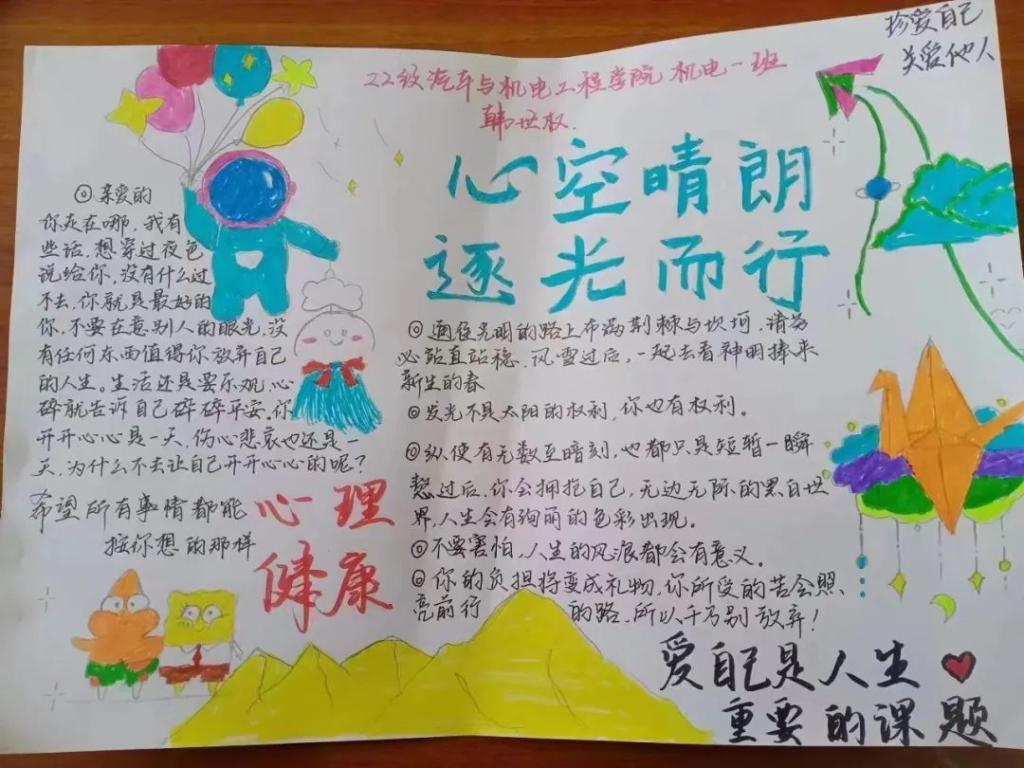 珍爱自己
关爱他人
22级汽车与机电工程学院 机电一班
韩世权.
心空晴朗
逐光而行
◎ 亲爱的
你走在哪,我有
些话,想穿过夜色
说给你,没有什么过
不去,你就是最好的
你,不要在意别人的眼光,没
有任何东西值得你放弃自己
的人生。生活还是要乐观,心
碎就告诉自己碎碎平安,你
开开心心是一天,伤心悲哀也还是一
天,为什么不去让自己开开心心的呢?
希望所有事情都能
按你想的那样
心理
健康
◎ 通往光明的路上布满荆棘与坎坷,请务
必站直站稳,风雪过后,一起去看神明捧来
新生的春
◎发光不是太阳的权利,你也有权利。
◎纵使有无数至暗刻,也都只是短暂一瞬
熬过后,你会拥抱自己,无边无际的黑白世
界,人生会有绚丽的色彩出现。
◎不要害怕,人生的风浪都会有意义。
◎你的负担将变成礼物,你所受的苦会照
亮前行的路,所以千万别放弃!
爱自己是人生
重要的课题